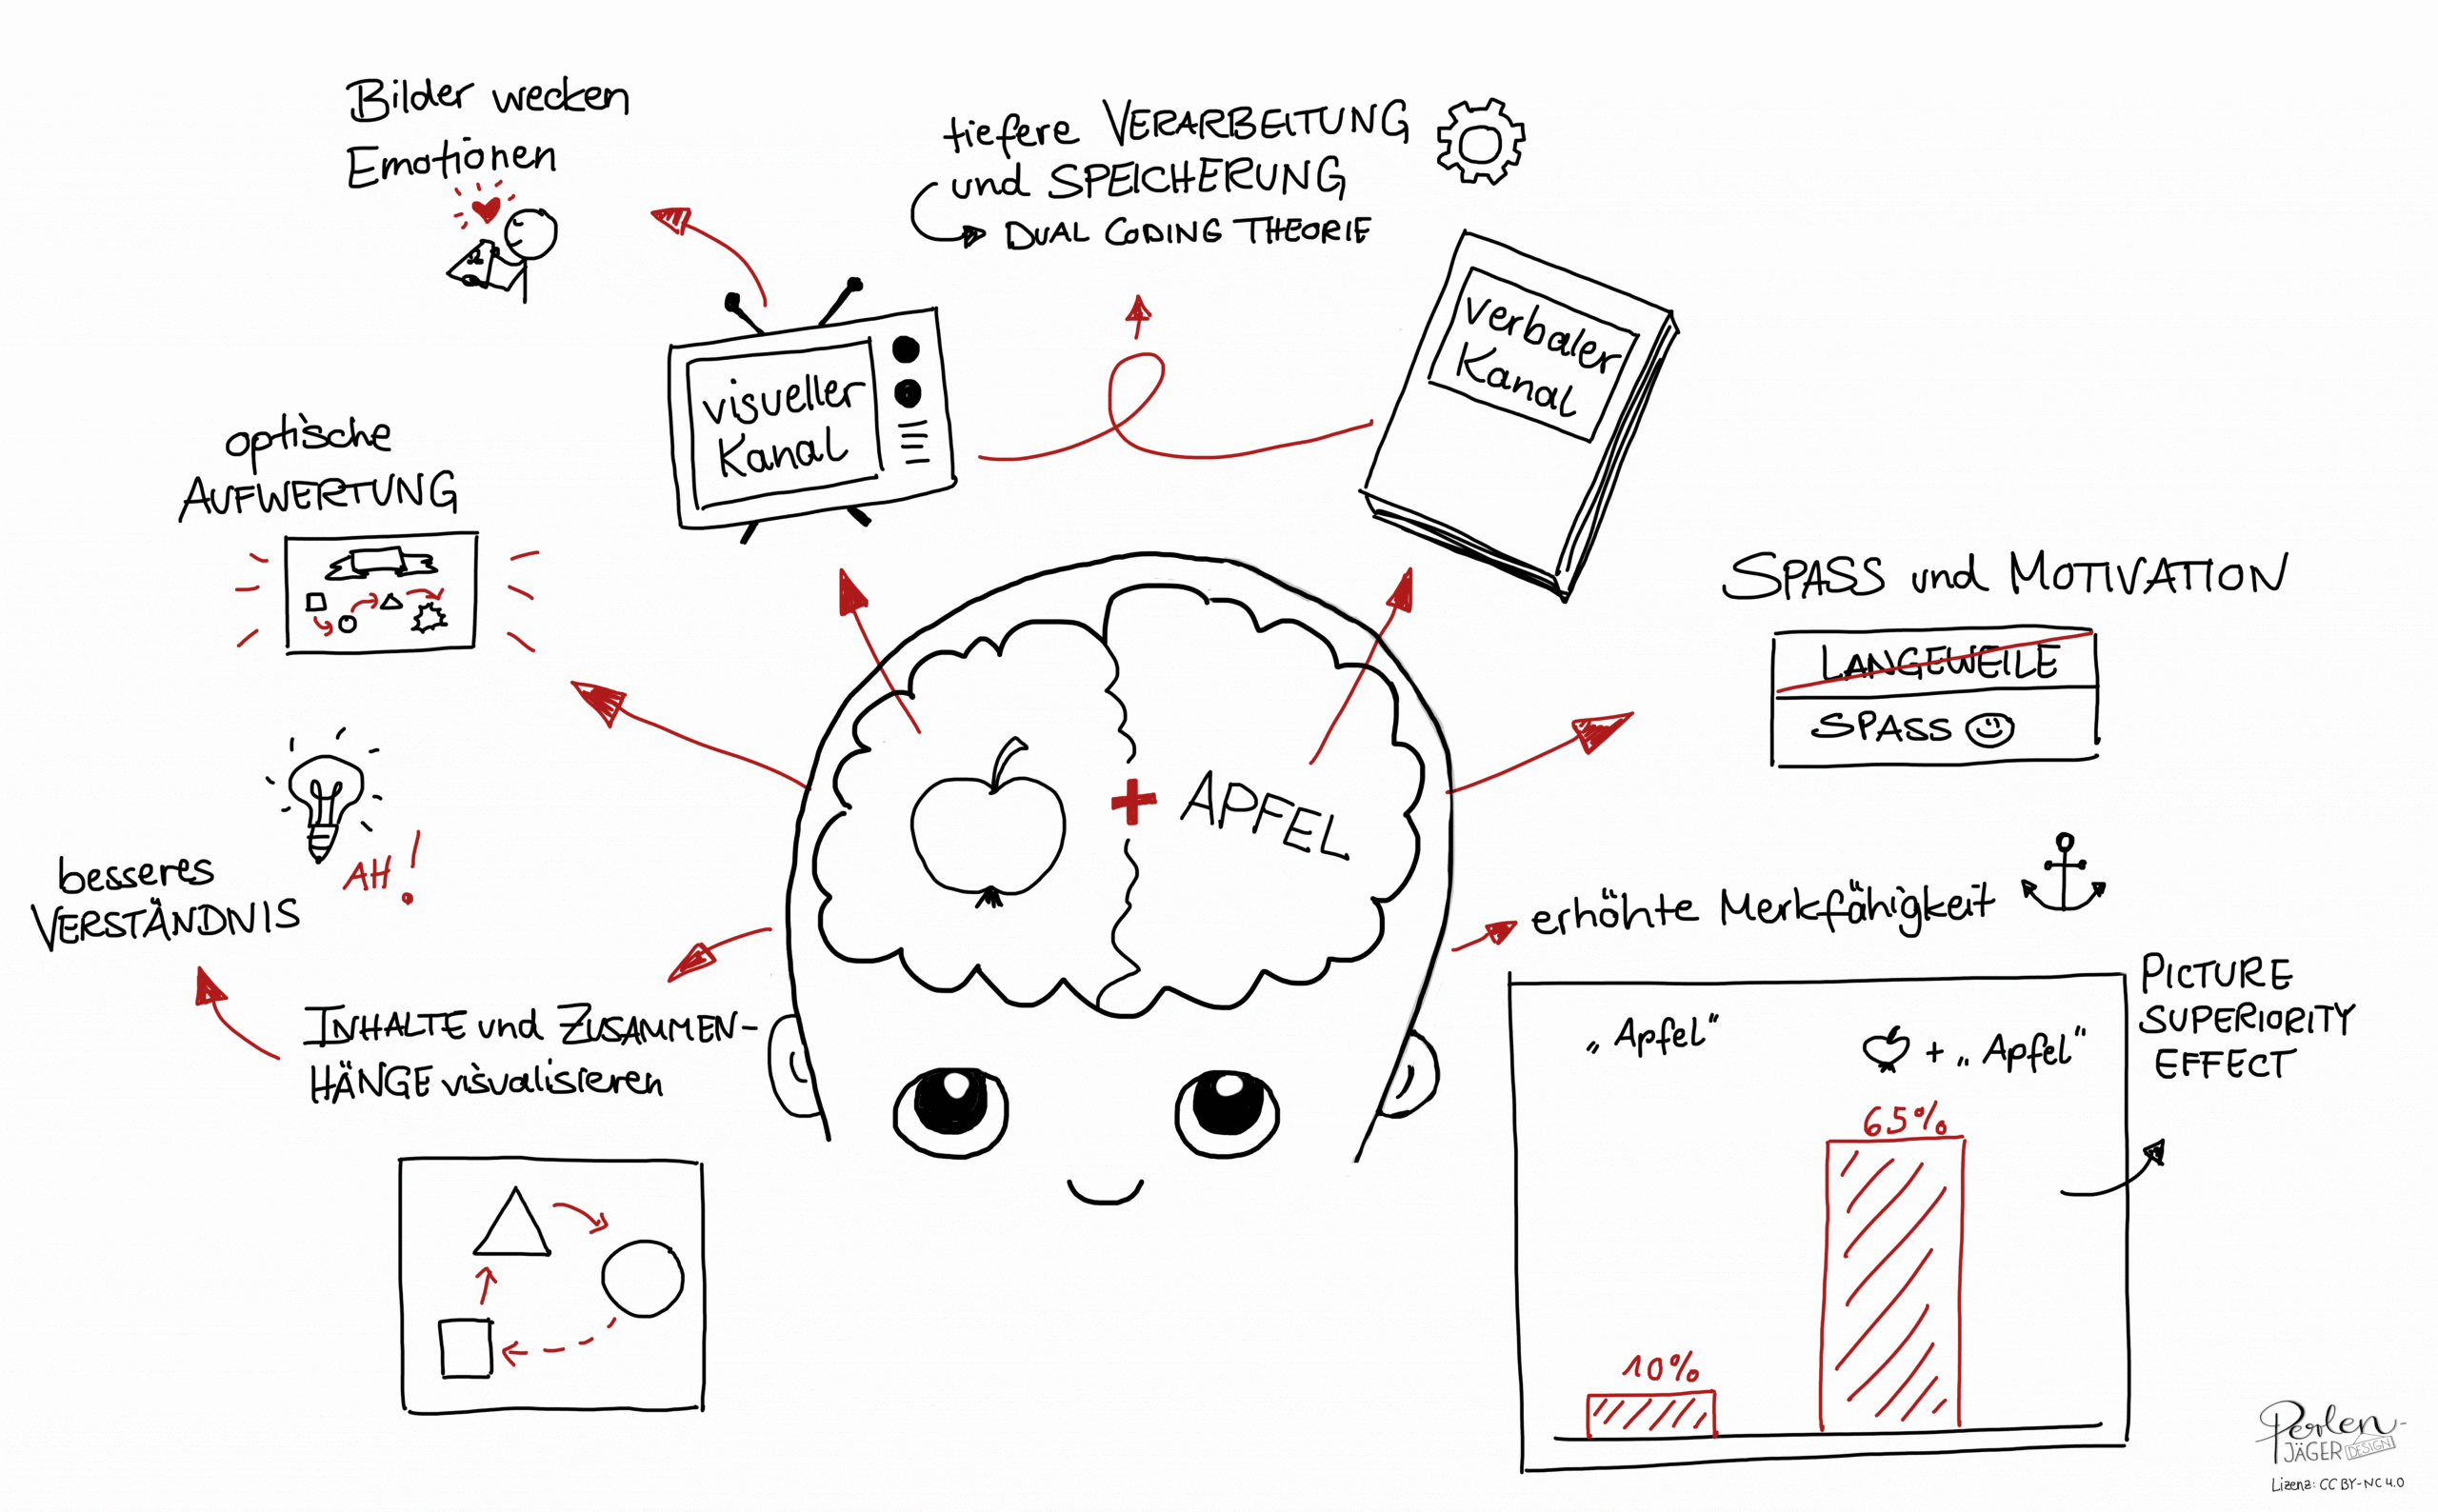 Bilder wecken
Emotionen
tiefere VERARBEITUNG
und SPEICHERUNG
DUAL CODING THEORIE
visueller
Kanal
Verbaler
Kanal
optische
AUFWERTUNG
SPASS und MOTIVATION
LANGEWEILE
SPASS
APFEL
AH!
besseres
VERSTÄNDNIS
erhöhte Merkfähigkeit
INHALTE und ZUSAMMEN-
HÄNGE visualisieren
PICTURE
SUPERIORITY
EFFECT
„Apfel“
+ „Apfel“
65%
10%
Perlen-
JÄGER DESIGN
Lizenz: CC BY-NC 4.0